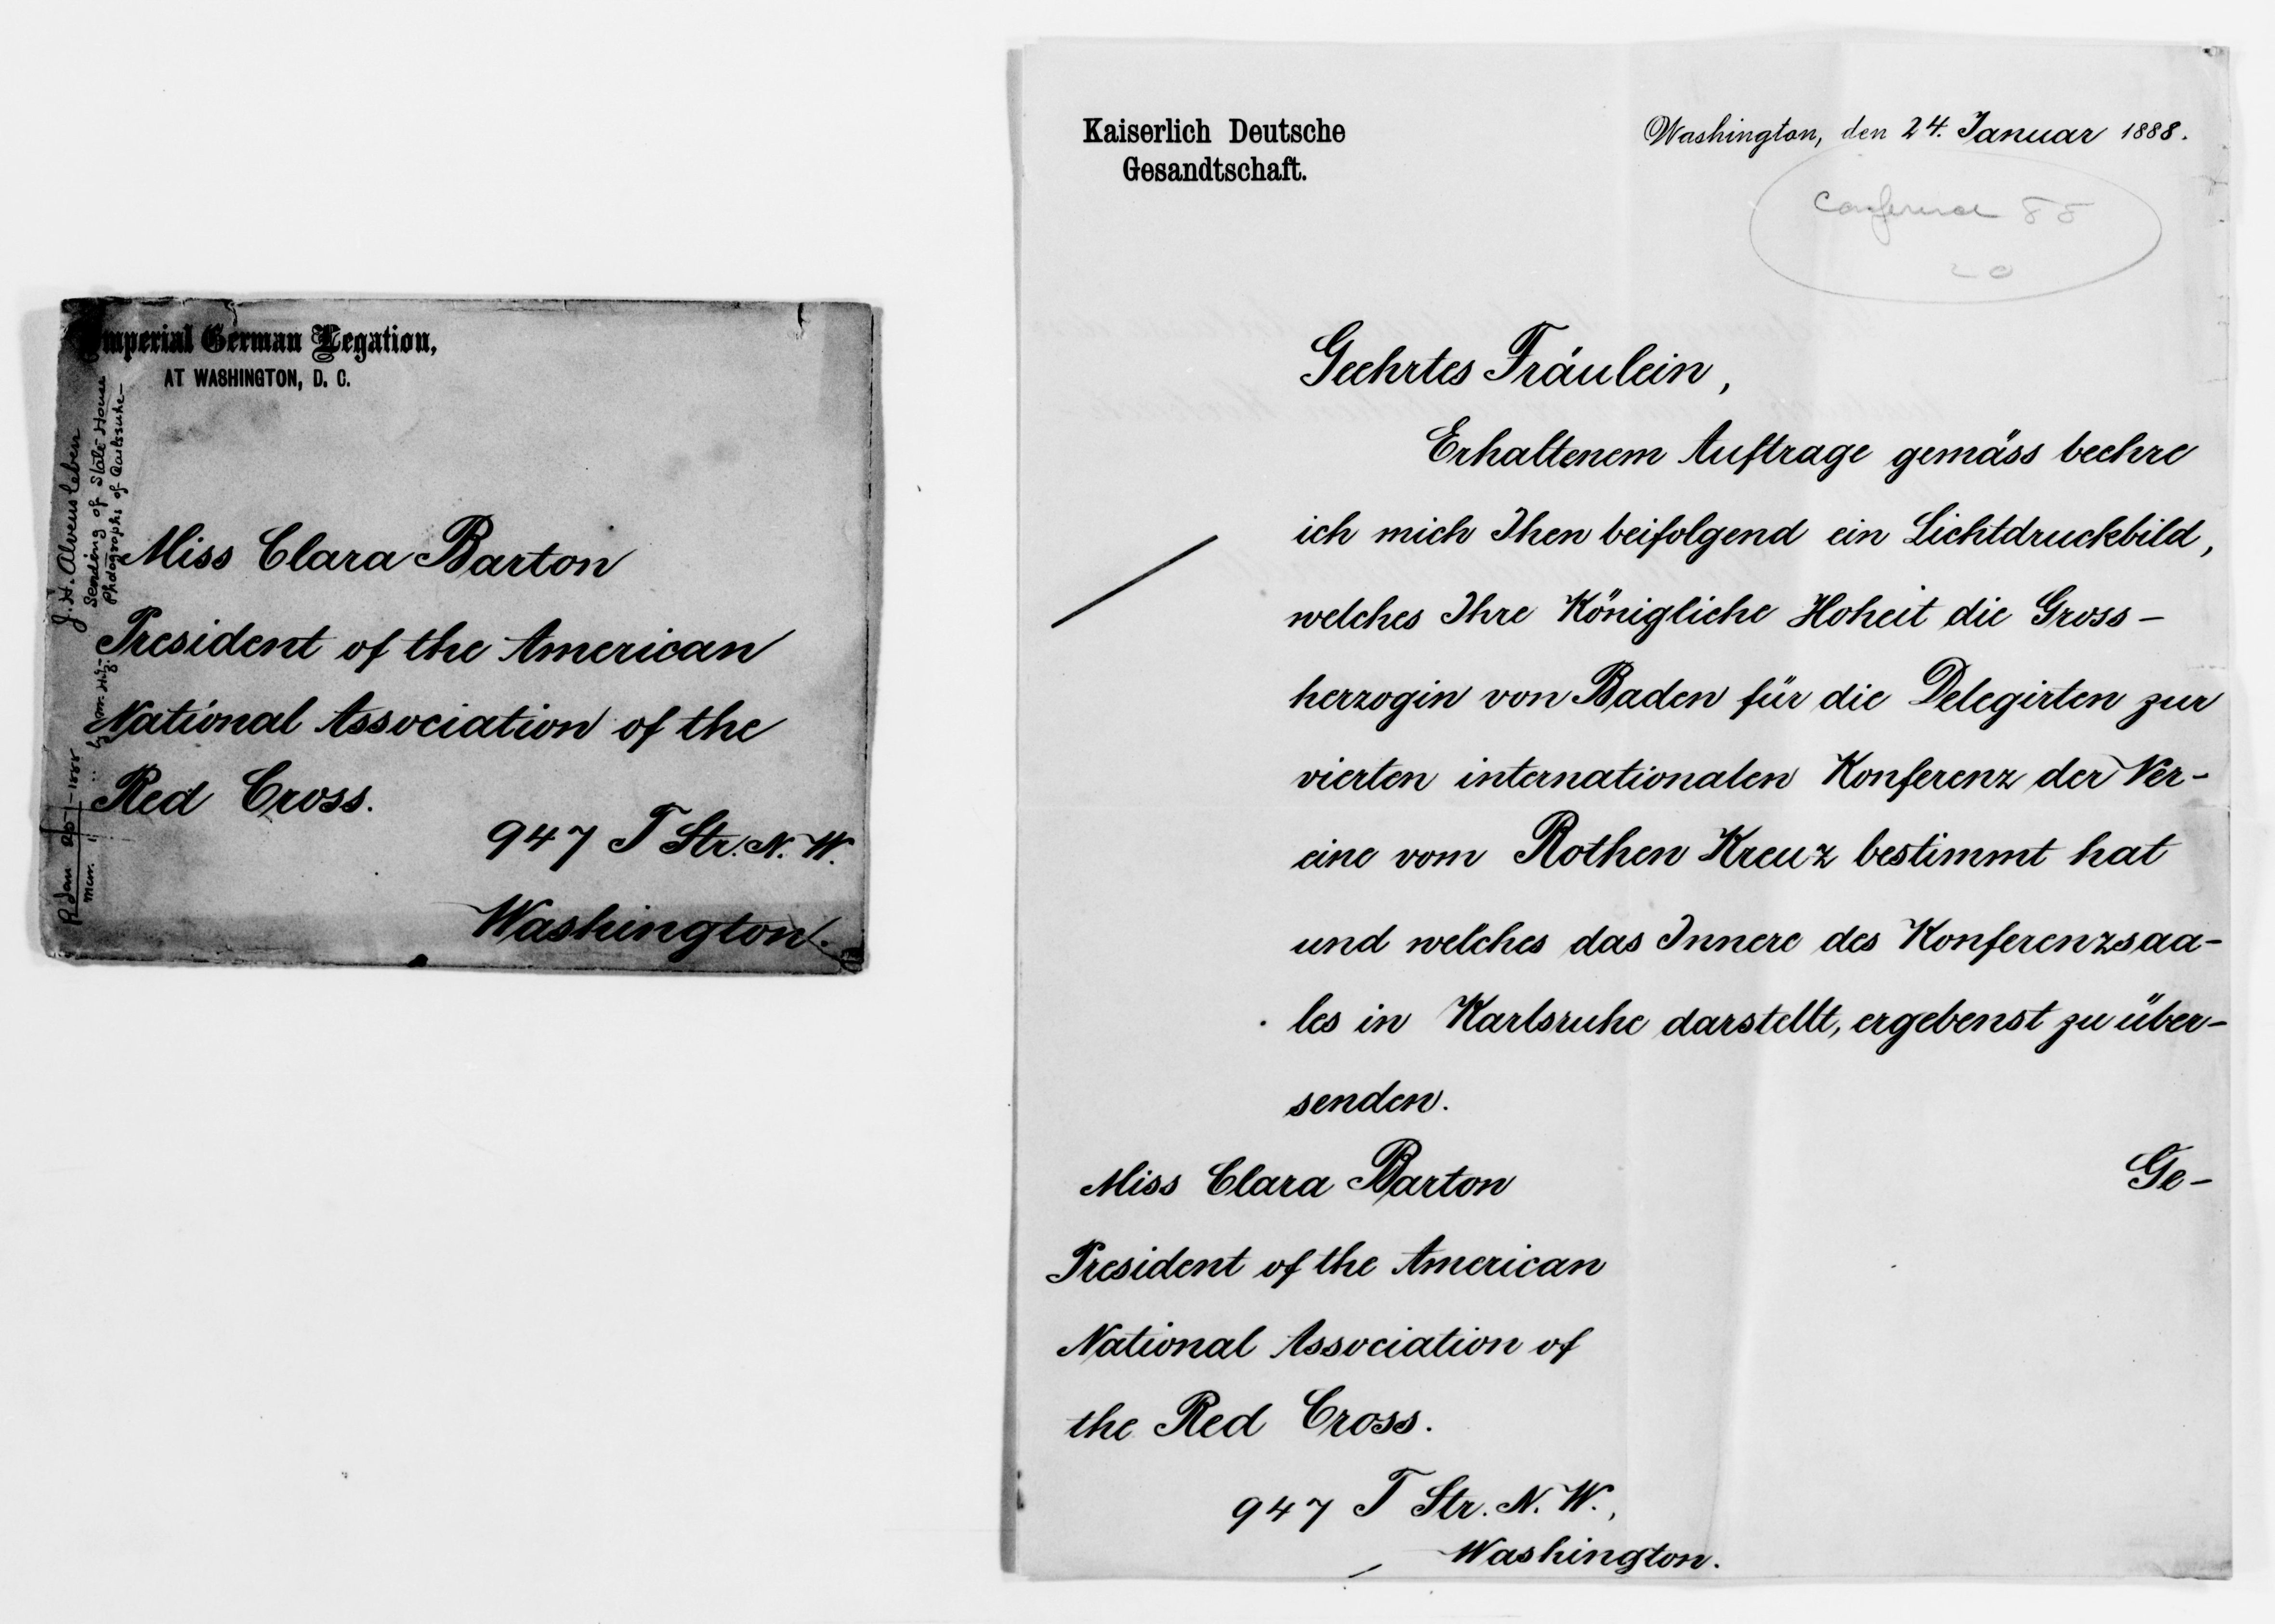 Imperial German Legation,
AT WASHINGTON, D. C.
Miss Clara Barton
President of the American
National Association of the
Red Cross.
947 T Str. N. W.
Washington.
J. H. Alvensleben
Sending of State House
Photographs of Carlsruhe—
R Jan 25–1888
Kaiserlich Deutsche
Gesandtschaft.
Washington, den 24. Januar 1888.
Conference 88
20
Geehrtes Fräulein,
Erhaltenem Auftrage gemäss beehre
ich mich Ihen beifolgend ein Lichtdruckbild,
welches Ihre Königliche Hoheit die Gross-
herzogin von Baden für die Delegirten zur
vierten internationalen Konferenz der Ver-
eine vom Rothen Kreuz bestimmt hat
und welches das Innere des Konferenzsaa-
les in Karlsruhe darstellt, ergebenst zu über-
senden.
Ge-
Miss Clara Barton
President of the American
National Association of
the Red Cross.
947 T Str. N. W.,
Washington.